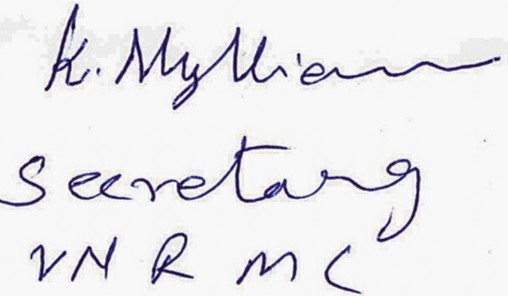 K. Mylliam
Secretary
VNR MC